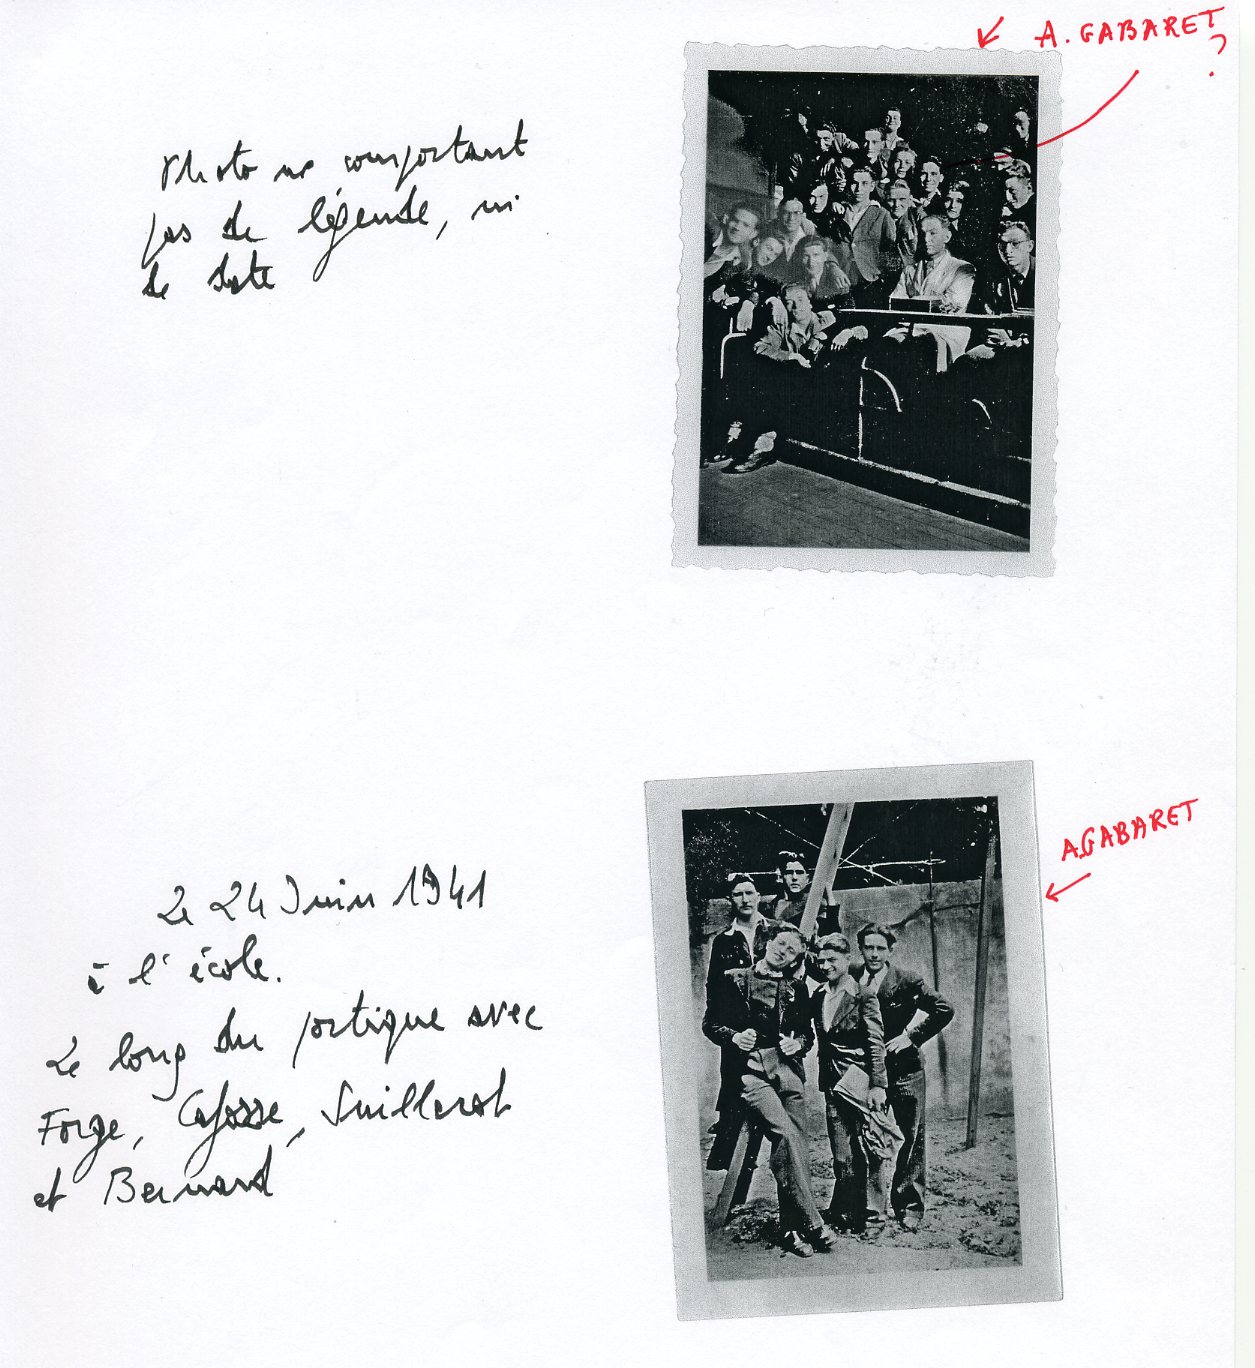 A. GABARET
?
Photo ne comportant
pas de légende, ni
de date
A GABARET
Le 24 Juin 1941
à l'école.
Le long du portique avec
Forge, Cafosse, Guillerot
et Bernard